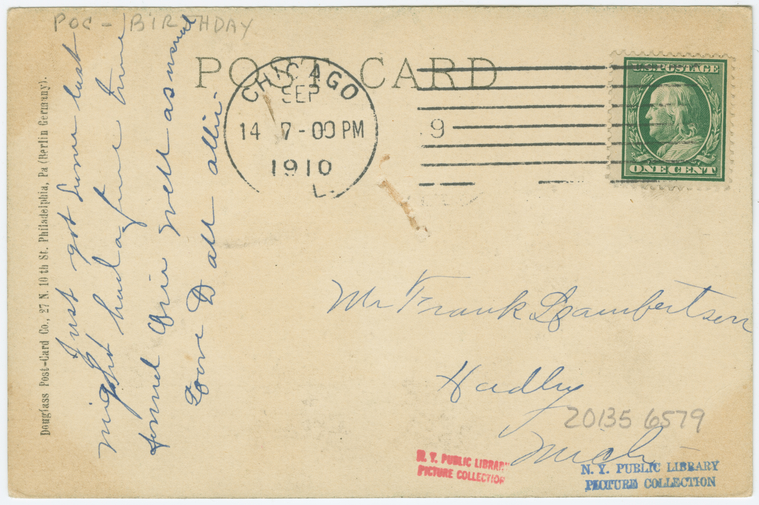 POC - BIRTHDAY
POST CARD
CHICAGO
SEP
14 7-00 PM
1910
9
U.S. POSTAGE
ONE CENT
Just got home last
night had a fine time
found Orie well as usual
Love to all Allie.
Douglass Post-Card Co., 27 N. 10th St. Philadelphia, Pa (Berlin Germany).
Mr Frank Lambertson
Hadley
Mich
20135 6579
N. Y. PUBLIC LIBRARY
PICTURE COLLECTION
N. Y. PUBLIC LIBRARY
PICTURE COLLECTION